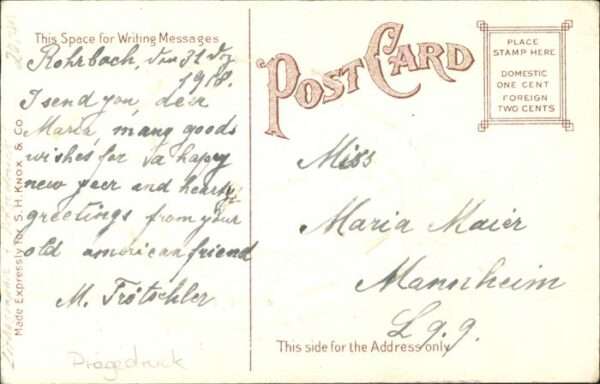 This Space for Writing Messages
Rohrbach, den 31 Dz
1918.
I send you, deer
Maria, mang goods
wishes for a hapy
new yeer and hearty
greetings from your
old american friend
M. Frötschler
Made Expressly for S. H. Knox & Co.
POST CARD
PLACE
STAMP HERE
DOMESTIC
ONE CENT
FOREIGN
TWO CENTS
Miss
Maria Maier
Mannheim
L 9.9.
This side for the Address only
Prägedruck